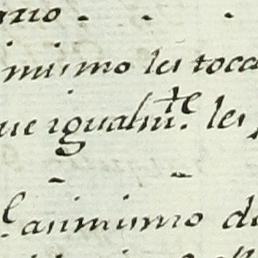 ario - - -
mismo les toca
ue igualm.te les
l asimismo de